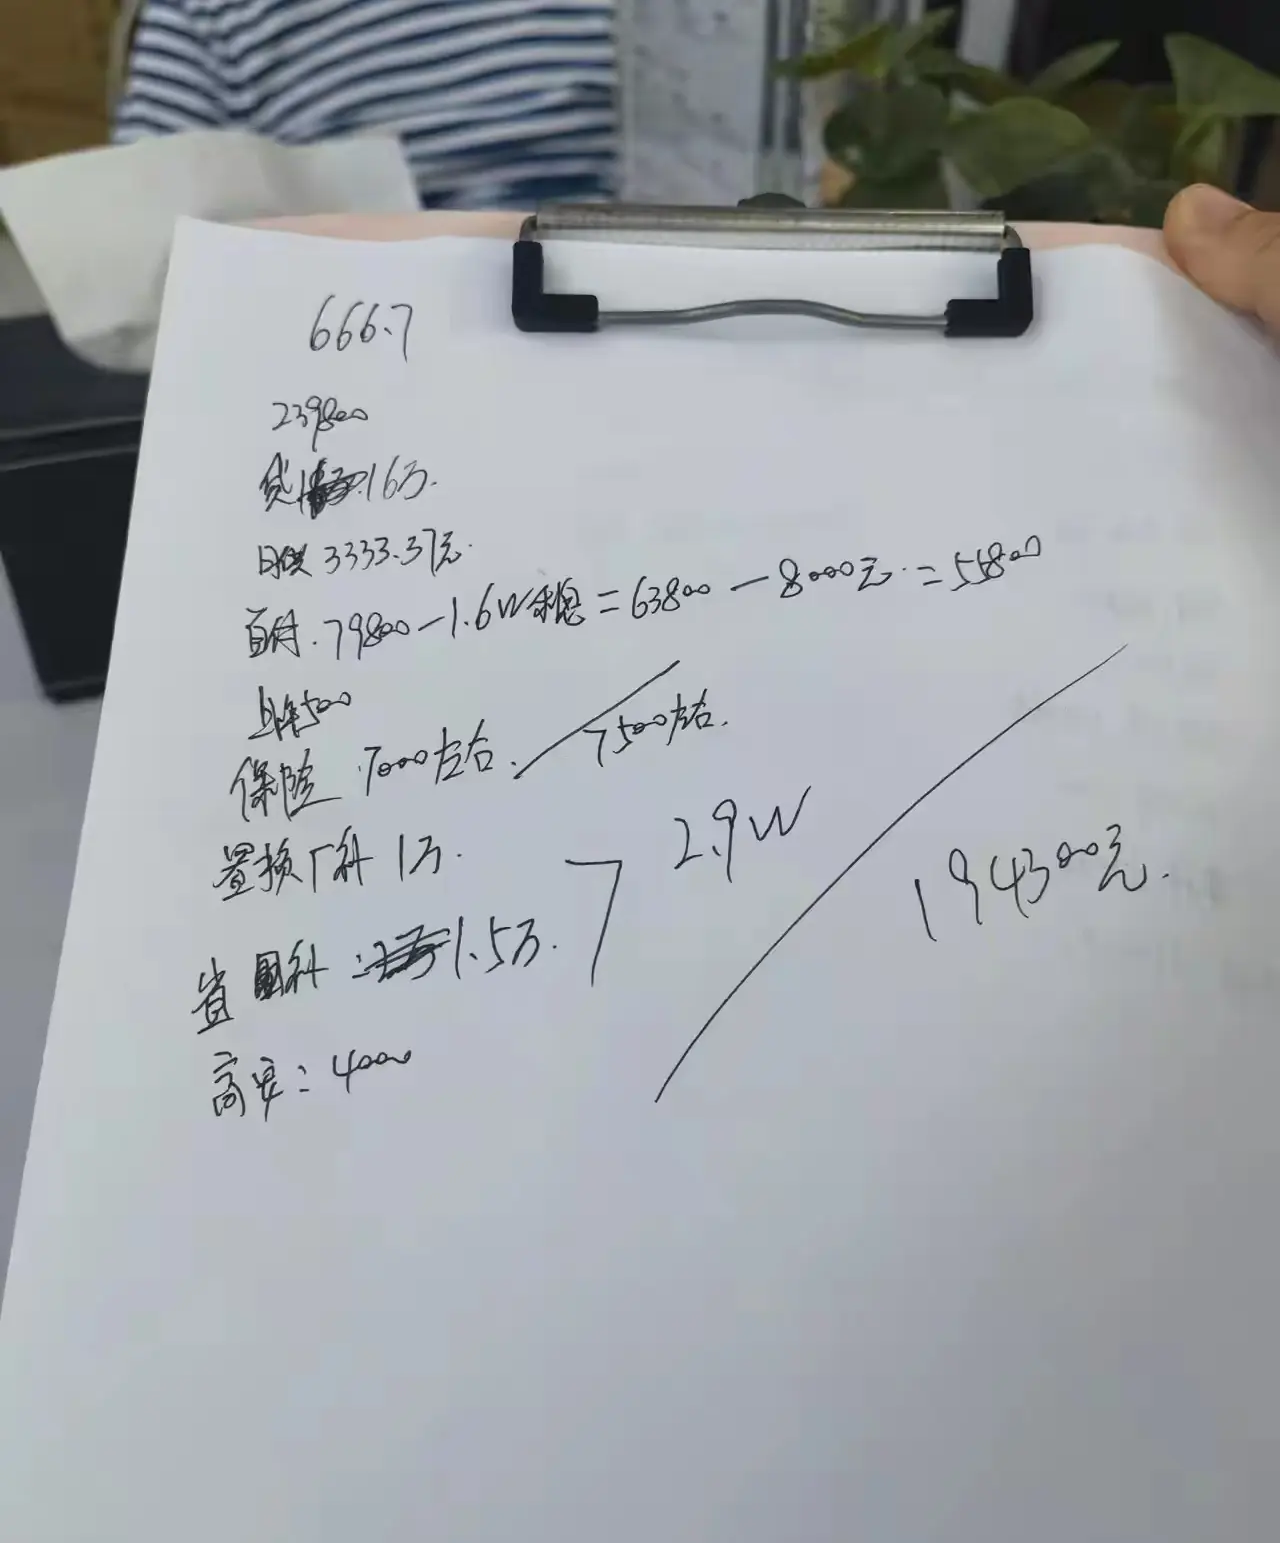 666.7
239800
贷 16万.
月供 3333.37元.
首付. 79800-1.6W利息=63800-8000元.=55800
上牌500
保险 7000左右. 7500左右.
置换厂补 1万.
2.9W
194300元.
省国补: 1.5万.
高定: 4000